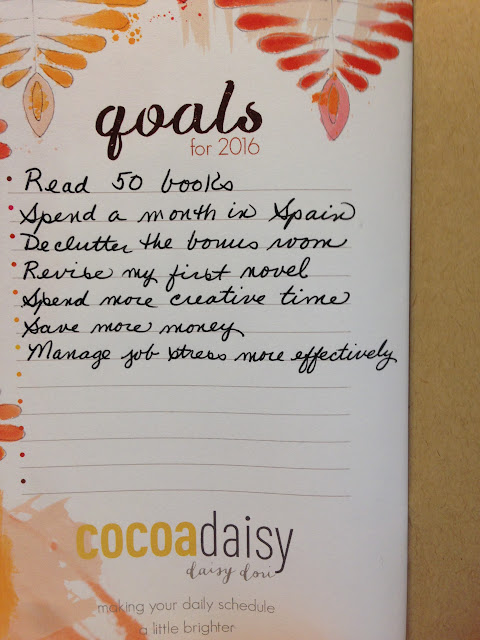 goals
for 2016
Read 50 books
Spend a month in Spain
Declutter the bonus room
Revise my first novel
Spend more creative time
Save more money
Manage job stress more effectively
cocoadaisy
daisy dori
making your daily schedule
a little brighter